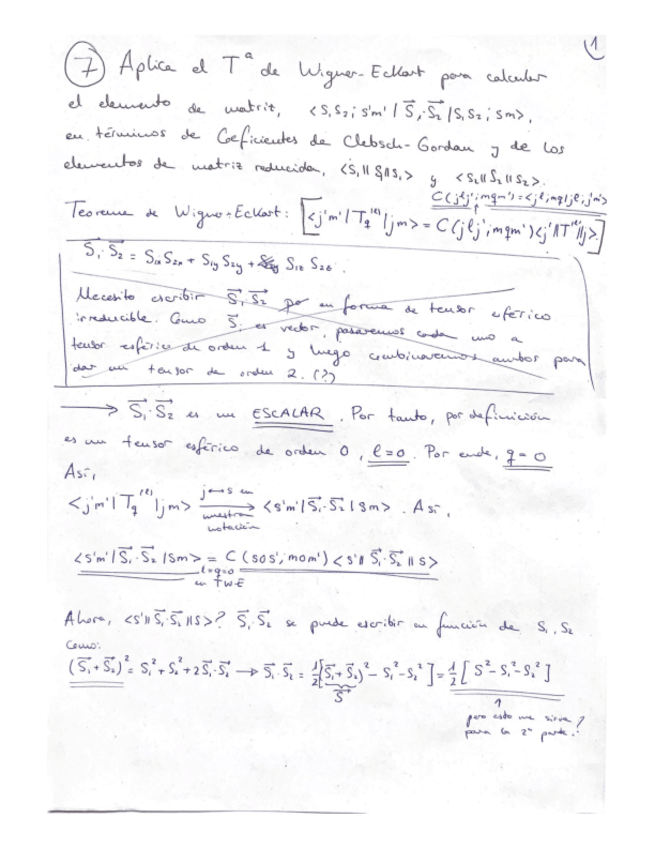 1
7 Aplica el Tª de Wigner-Eckart para calcular
el elemento de matriz, <S₁S₂; s'm' | S⃗₁·S⃗₂ | S₁S₂; sm>,
en términos de Coeficientes de Clebsch-Gordan y de los
elementos de matriz reducida, <S₁||S₁||S₁> y <S₂||S₂||S₂>.
C(jlj'; mqm') = <jl; mq|jl; j'm'>
Teorema de Wigner-Eckart: [<j'm'|T_q^(l)|jm> = C(jlj'; mqm') <j'||T^(l)||j>]
S⃗₁·S⃗₂ = S₁ₓS₂ₓ + S₁yS₂y + S₁zS₂z.
Necesito escribir S⃗₁·S⃗₂ en forma de tensor esférico
irreducible. Como S⃗ᵢ es vector, pasaremos cada uno a
tensor esférico de orden 1 y luego combinaremos ambos para
dar un tensor de orden 2. (?)
→ S⃗₁·S⃗₂ es un ESCALAR. Por tanto, por definición
es un tensor esférico de orden 0, l=0. Por ende, q=0
Así,
<j'm'|T_q^(l)|jm> j↔s en nuestra notación → <s'm'|S⃗₁·S⃗₂|sm>. Así,
<s'm'|S⃗₁·S⃗₂|sm> = C(s0s'; m0m') <s'||S⃗₁·S⃗₂||s>
l=q=0
en TWE
Ahora, <s'||S⃗₁·S⃗₂||s>? S⃗₁·S⃗₂ se puede escribir en función de S₁, S₂
como:
(S⃗₁+S⃗₂)² = S₁²+S₂²+2S⃗₁·S⃗₂ → S⃗₁·S⃗₂ = ½[(S⃗₁+S⃗₂)² - S₁² - S₂²] = ½[S² - S₁² - S₂²]
S⃗
↑
pero esto me sirve
para la 2ª parte?